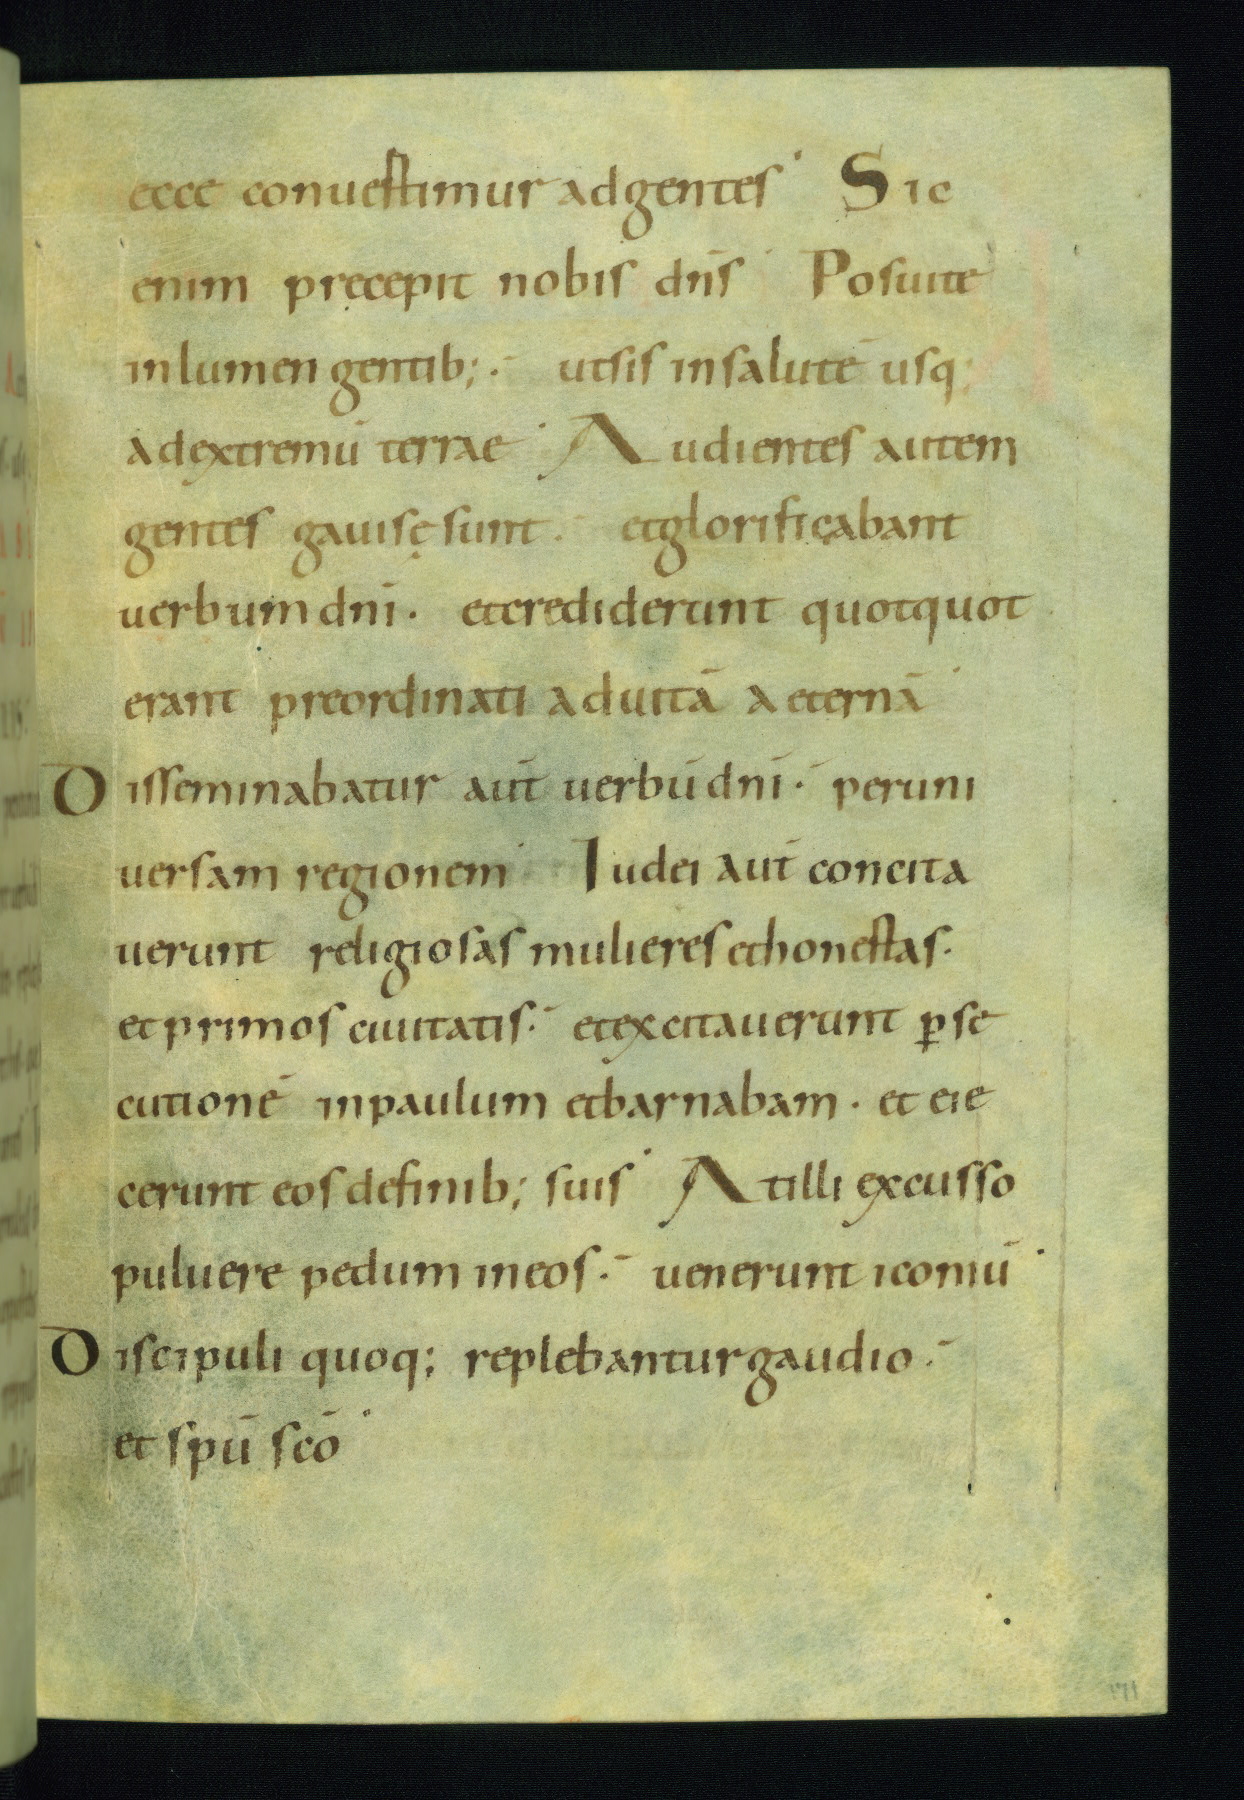 ecce conuestimur adgentes· Sic
enim pręcepit nobis dn̄s· Posuite
inlumen gentib;·⁻ utsis insalutē usq;
adextremū terrae· Audientes autem
gentes gauisę sunt·⁻ etglorificabant
uerbum dnī· etcrediderunt quotquot
erant preordinati aduitā aeternā·
Disseminabatur aut̄ uerbū dnī·⁻ peruni
uersam regionem· Iudei aut̄ concita
uerunt religiosas mulieres ethonestas·
et primos ciuitatis·⁻ etexcitauerunt ꝑse
cutionē inpaulum etbarnabam· et eie
cerunt eos definib; suis· Atilli excusso
puluere pedum ineos·⁻ uenerunt iconiū·
Discipuli quoq; replebantur gaudio·⁻
et spū scō·
171